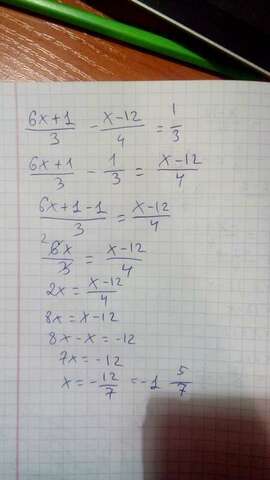 (6x+1)/3 - (x-12)/4 = 1/3
(6x+1)/3 - 1/3 = (x-12)/4
(6x+1-1)/3 = (x-12)/4
2 6x/3 = (x-12)/4
2x = (x-12)/4
8x = x-12
8x-x = -12
7x = -12
x = -12/7 = -1 5/7